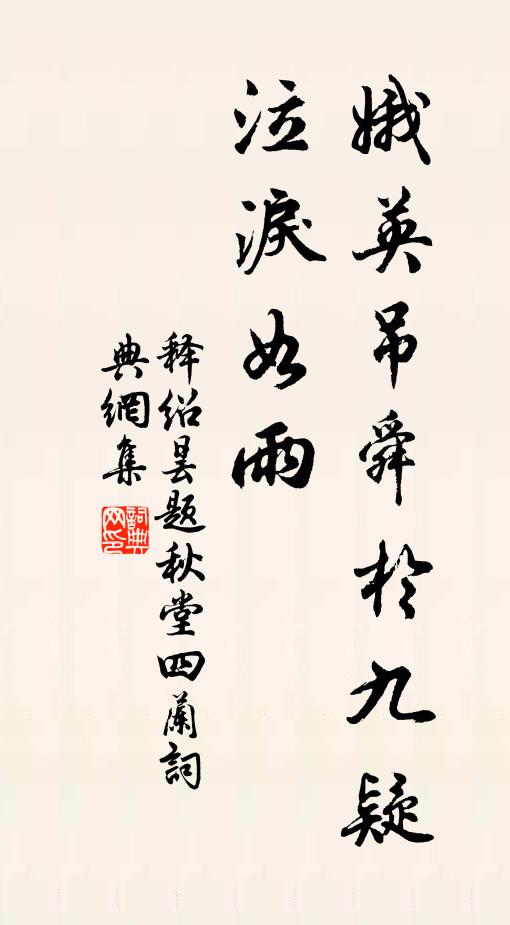 娥英吊舜於九疑
泣淚如雨
释绍昙题秋堂四蘭詞
典網集
詞典
网印